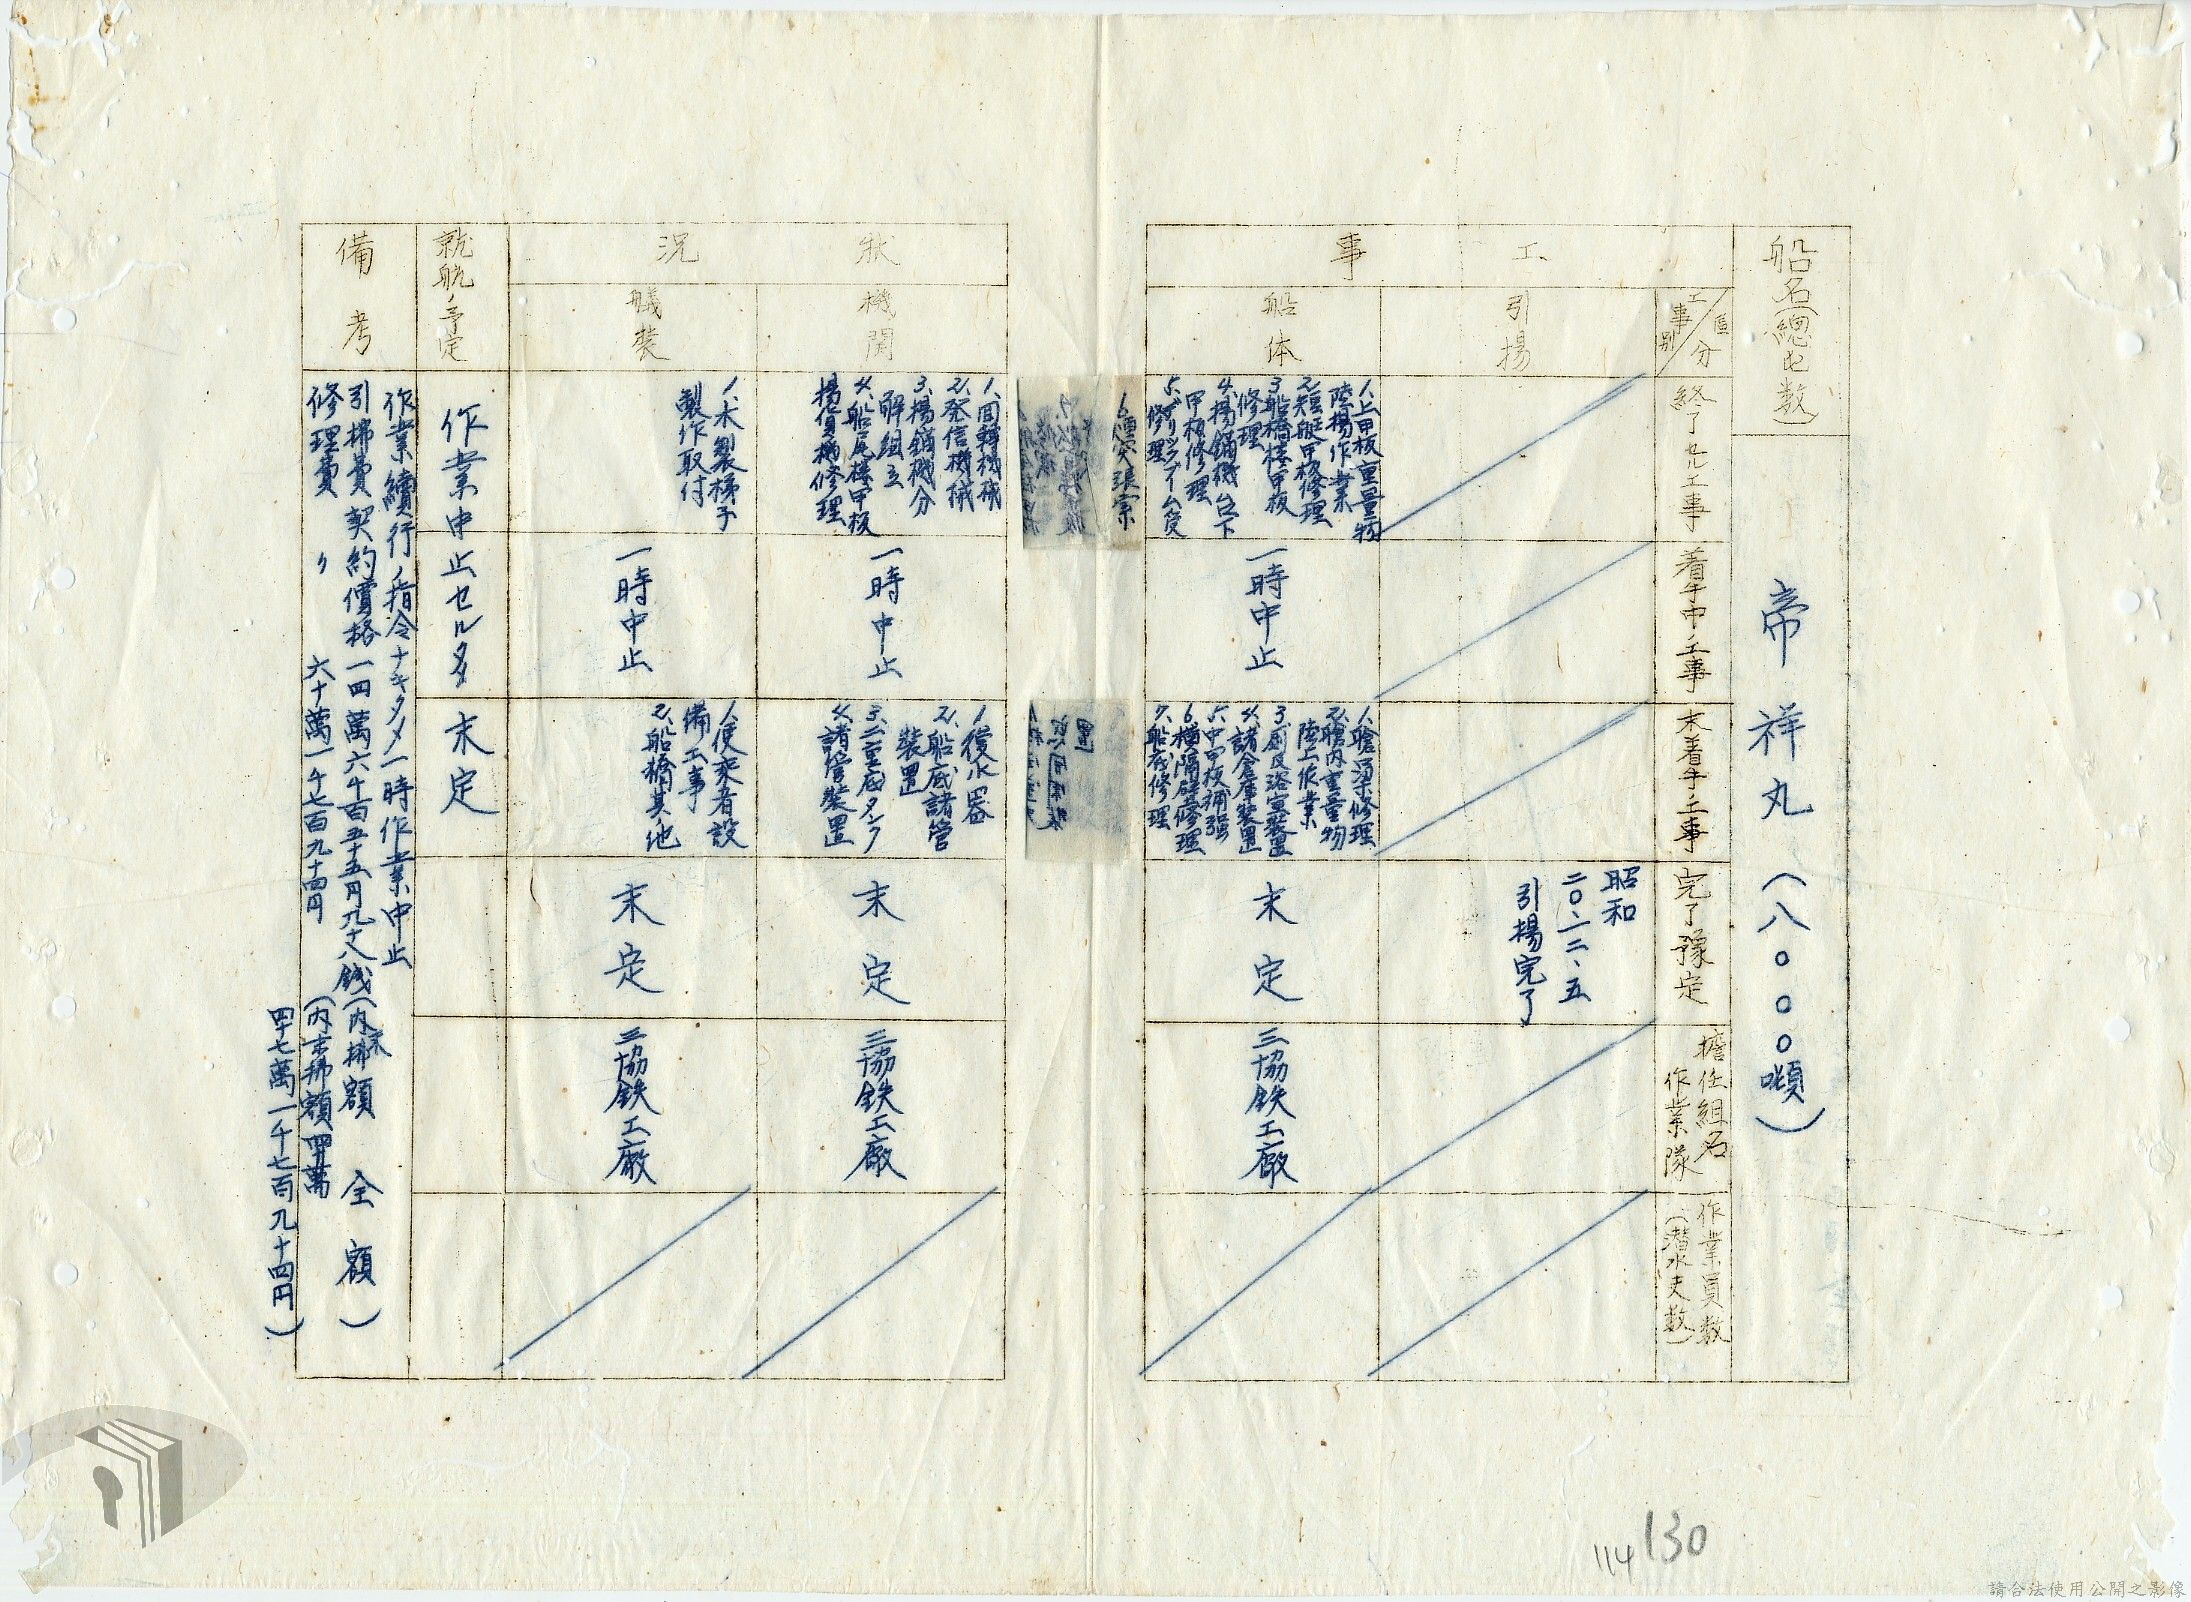 船名(總屯数)
帝祥丸(八〇〇〇噸)
工事
状況
区分
工事別
終了セル工事
着手中ノ工事
未着手ノ工事
完了豫定
擔任組名
作業隊
作業員数
(潜水夫数)
引揚
昭和
二〇、一二、五
引揚完了
船体
1、上甲板重量物
陸揚作業
2、短艇甲板修理
3、船橋楼甲板
修理
4、揚錨機台下
甲板修理
修理
一時中止
1、艙梁修理
2、艙内重量物
陸上作業
3、厨及浴室装置
4、諸倉庫装置
5、中甲板補強
6、横隔壁修理
7、船底修理
未定
三協鉄工廠
機関
1、回轉機械
2、発信機械
3、揚錨機分
解組立
4、船尾楼甲板
揚貨機修理
一時中止
1、復水器
2、船底諸管
装置
3、二重底タンク
4、諸管装置
未定
三協鉄工廠
艤装
1、木製梯子
製作取付
一時中止
1、便乗者設
備工事
2、船橋其ノ他
未定
三協鉄工廠
就航ノ予定
作業中止セルタメ未定
備考
作業續行ノ指令ナキタメ一時作業中止
引揚費契約價格一四萬六千百五十五円九十八銭(内未拂額全額)
修理費〃六十萬一千七百九十四円(内未拂額
四十七萬一千七百九十四円)
114
130
請合法使用公開之影像